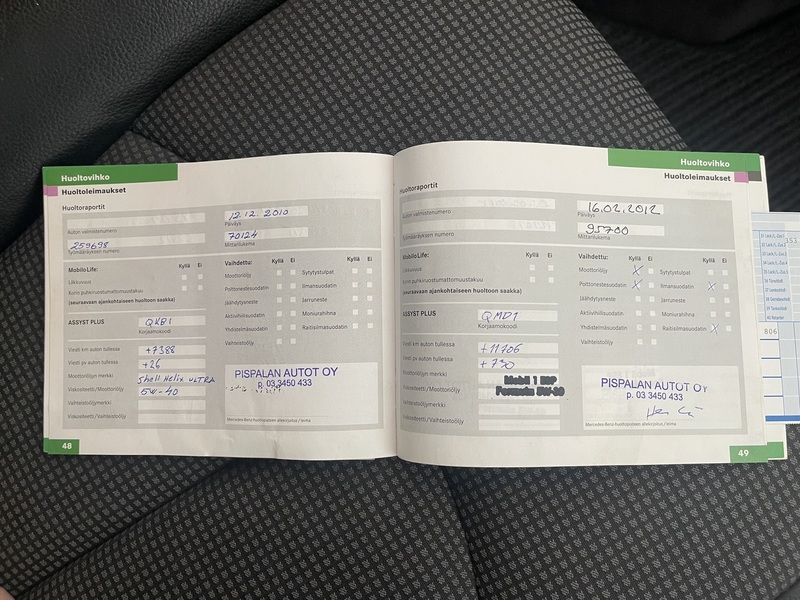 Huoltovihko
Huoltoleimaukset
Huoltoraportit
Auton valmistenumero
259698
Työmääräyksen numero:
12.12.2010
Päiväys
70124
Mittarilukema
MobiloLife:
Kyllä Ei
Liikkuvuus
Korin puhkiruostumattomuustakuu
(seuraavaan ajankohtaiseen huoltoon saakka)
ASSYST PLUS
QKB1
Korjaamokoodi
Viesti km auton tullessa
+7388
Viesti pv auton tullessa
+26
Moottoriöljyn merkki
Shell Helix ULTRA
Viskositeetti/Moottoriöljy
5W-40
Vaihteistoöljymerkki
Viskositeetti/Vaihteistoöljy
Vaihdettu:
Kyllä Ei
Kyllä Ei
Moottoriöljy
Sytytystulpat
Polttonestesuodatin
Ilmansuodatin
Jäähdytysneste
Jarruneste
Aktiivihiilisuodatin
Moniurahihna
Yhdistelmäsuodatin
Raitisilmasuodatin
Vaihteistoöljy
PISPALAN AUTOT OY
p. 03 3450 433
Mercedes-Benz-huoltopisteen allekirjoitus / leima
48
Huoltovihko
Huoltoleimaukset
Huoltoraportit
Auton valmistenumero
Työmääräyksen numero
16.02.2012
Päiväys
95700
Mittarilukema
MobiloLife:
Kyllä Ei
Liikkuvuus
Korin puhkiruostumattomuustakuu
(seuraavaan ajankohtaiseen huoltoon saakka)
ASSYST PLUS
QMD1
Korjaamokoodi
Viesti km auton tullessa
+11706
Viesti pv auton tullessa
Moottoriöljyn merkki
Mobil 1 ESP
Formula 5W-30
Viskositeetti/Moottoriöljy
Vaihteistoöljymerkki:
Viskositeetti/Vaihteistoöljy
Vaihdettu:
Kyllä Ei
Kyllä Ei
Moottoriöljy X
Sytytystulpat
Polttonestesuodatin X
Ilmansuodatin X
Jäähdytysneste
Jarruneste
Aktiivihiilisuodatin
Moniurahihna
Yhdistelmäsuodatin
Raitisilmasuodatin X
Vaihteistoöljy
PISPALAN AUTOT OY
p. 03 3450 433
Mercedes-Benz-huoltopisteen allekirjoitus / leima
49
806